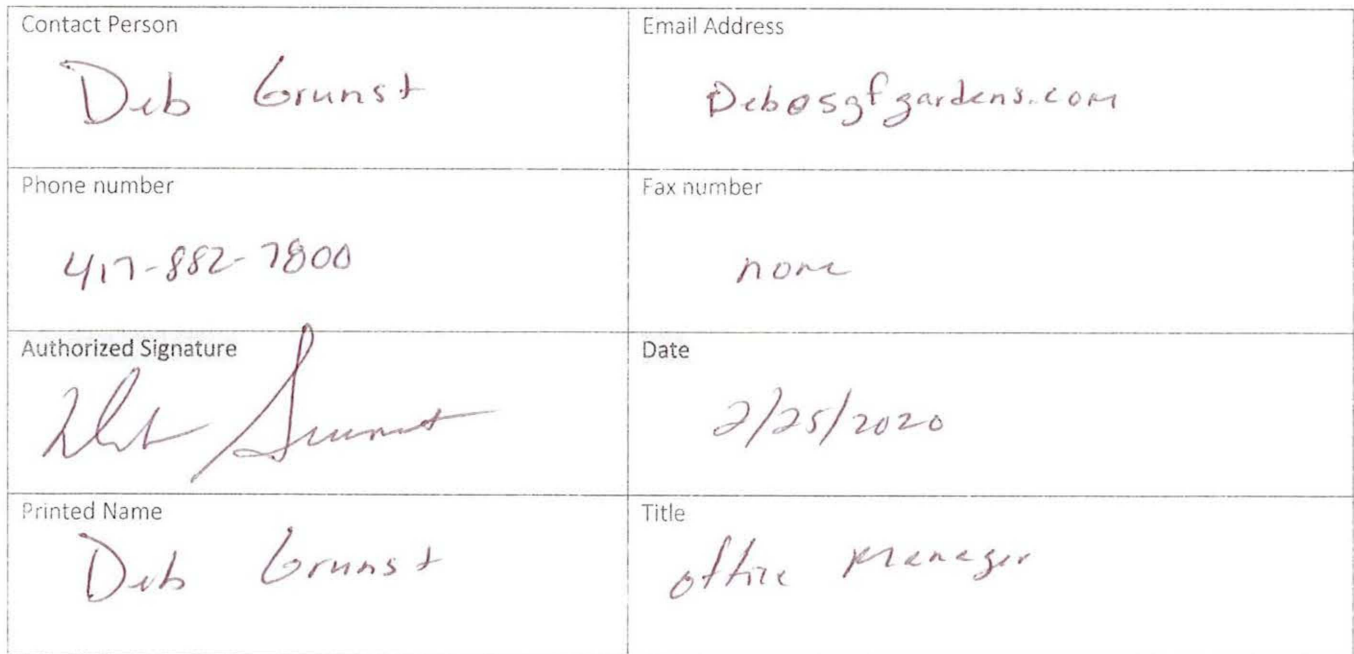 Contact Person
Deb Grunst
Email Address
Deb@sgfgardens.com
Phone number
417-882-7800
Fax number
none
Authorized Signature
Deb Grunst
Date
2/25/2020
Printed Name
Deb Grunst
Title
office Manager